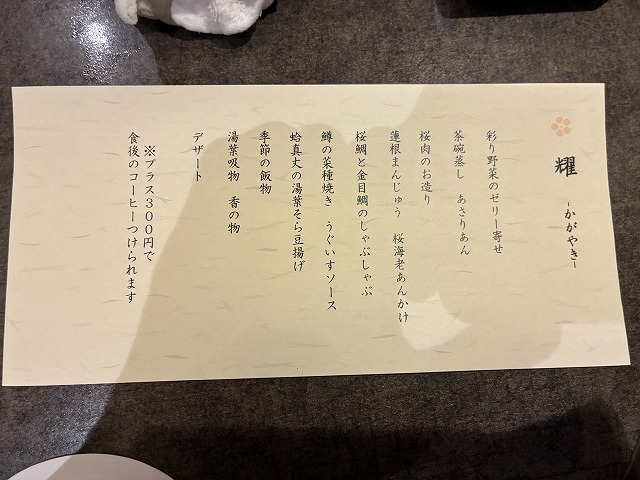 耀 -かがやき-
彩り野菜のゼリー寄せ
茶碗蒸し あさりあん
桜肉のお造り
蓮根まんじゅう 桜海老あんかけ
桜鯛と金目鯛のしゃぶしゃぶ
鱒の菜種焼き うぐいすソース
蛤真丈の湯葉そら豆揚げ
季節の飯物
湯葉吸物 香の物
デザート
※プラス300円で
食後のコーヒーつけられます